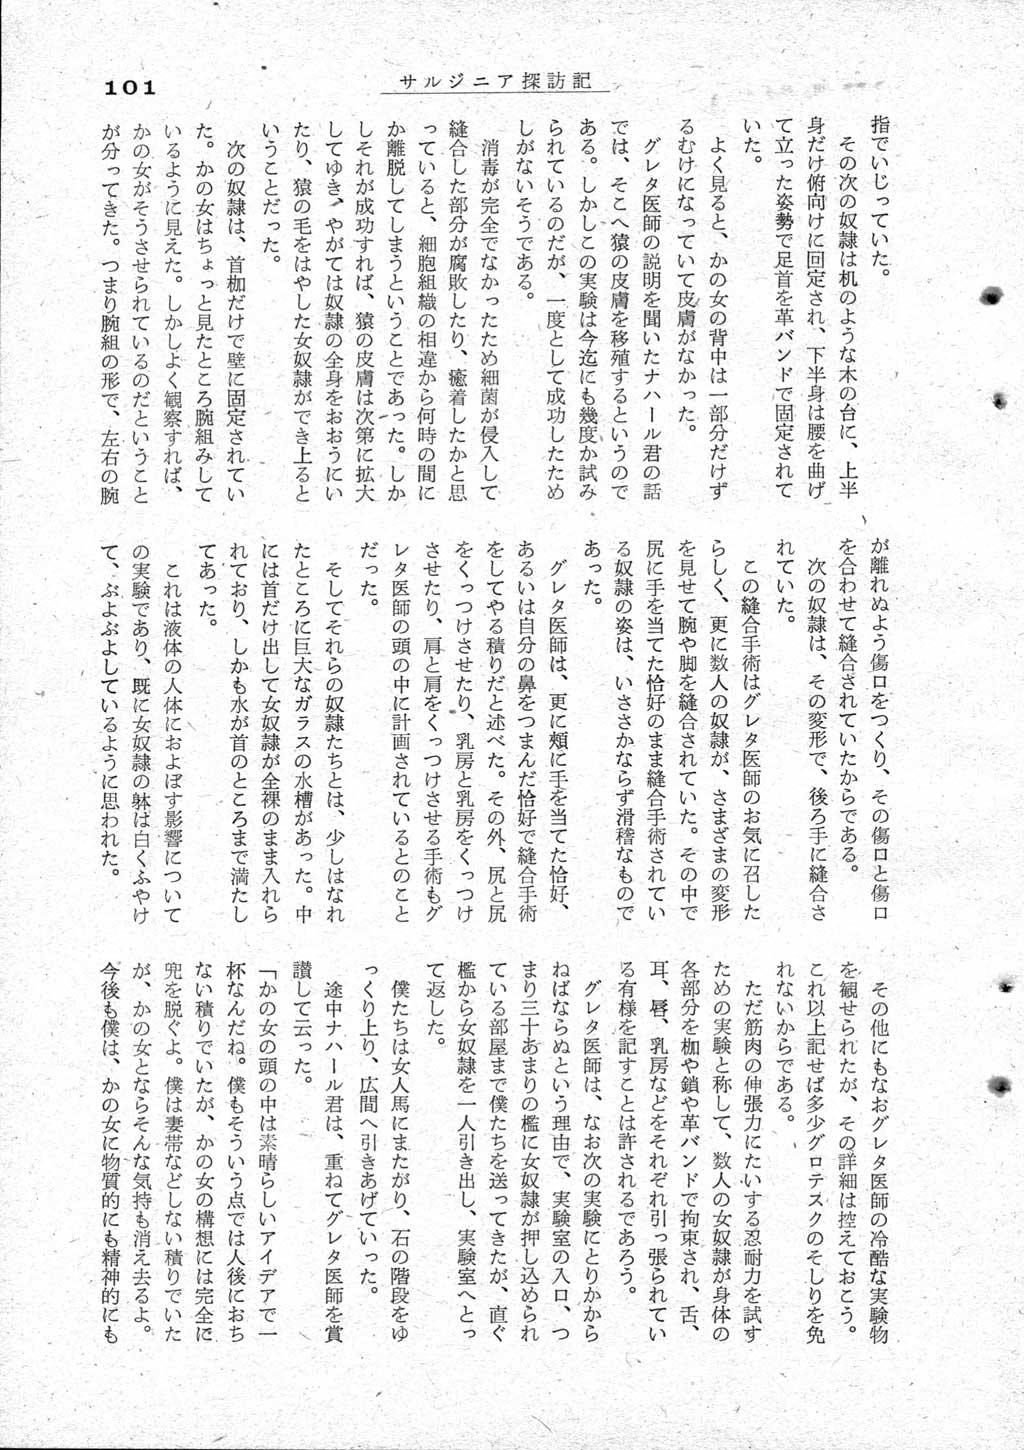 101
サルジニア探訪記
指でいじっていた。
その次の奴隷は机のような木の台に、上半
身だけ俯向けに固定され、下半身は腰を曲げ
て立った姿勢で足首を革バンドで固定されて
いた。
よく見ると、かの女の背中は一部分だけず
るむけになっていて皮膚がなかった。
グレタ医師の説明を聞いたナハール君の話
では、そこへ猿の皮膚を移殖するというので
ある。しかしこの実験は今迄にも幾度か試み
られているのだが、一度として成功したため
しがないそうである。
消毒が完全でなかったため細菌が侵入して
縫合した部分が腐敗したり、癒着したかと思
っていると、細胞組織の相違から何時の間に
か離脱してしまうということであった。しか
しそれが成功すれば、猿の皮膚は次第に拡大
してゆき、やがては奴隷の全身をおおうにい
たり、猿の毛をはやした女奴隷ができ上ると
いうことだった。
次の奴隷は、首枷だけで壁に固定されてい
た。かの女はちょっと見たところ腕組みして
いるように見えた。しかしよく観察すれば、
かの女がそうさせられているのだということ
が分ってきた。つまり腕組の形で、左右の腕
が離れぬよう傷口をつくり、その傷口と傷口
を合わせて縫合されていたからである。
次の奴隷は、その変形で、後ろ手に縫合さ
れていた。
この縫合手術はグレタ医師のお気に召した
らしく、更に数人の奴隷が、さまざまの変形
を見せて腕や脚を縫合されていた。その中で
尻に手を当てた恰好のまま縫合手術されてい
る奴隷の姿は、いささかならず滑稽なもので
あった。
グレタ医師は、更に頬に手を当てた恰好、
あるいは自分の鼻をつまんだ恰好で縫合手術
をしてやる積りだと述べた。その外、尻と尻
をくっつけさせたり、乳房と乳房をくっつけ
させたり、肩と肩をくっつけさせる手術もグ
レタ医師の頭の中に計画されているとのこと
だった。
そしてそれらの奴隷たちとは、少しはなれ
たところに巨大なガラスの水槽があった。中
には首だけ出して女奴隷が全裸のまま入れら
れており、しかも水が首のところまで満たし
てあった。
これは液体の人体におよぼす影響について
の実験であり、既に女奴隷の躰は白くふやけ
て、ぶよぶよしているように思われた。
その他にもなおグレタ医師の冷酷な実験物
を観せられたが、その詳細は控えておこう。
これ以上記せば多少グロテスクのそしりを免
れないからである。
ただ筋肉の伸張力にたいする忍耐力を試す
ための実験と称して、数人の女奴隷が身体の
各部分を枷や鎖や革バンドで拘束され、舌、
耳、唇、乳房などをそれぞれ引っ張られてい
る有様を記すことは許されるであろう。
グレタ医師は、なお次の実験にとりかから
ねばならぬという理由で、実験室の入口、つ
まり三十あまりの檻に女奴隷が押し込められ
ている部屋まで僕たちを送ってきたが、直ぐ
檻から女奴隷を一人引き出し、実験室へとっ
て返した。
僕たちは女人馬にまたがり、石の階段をゆ
っくり上り、広間へ引きあげていった。
途中ナハール君は、重ねてグレタ医師を賞
讃して云った。
「かの女の頭の中は素晴らしいアイデアで一
杯なんだね。僕もそういう点では人後におち
ない積りでいたが、かの女の構想には完全に
兜を脱ぐよ。僕は妻帯などしない積りでいた
が、かの女とならそんな気持も消え去るよ。
今後も僕は、かの女に物質的にも精神的にも